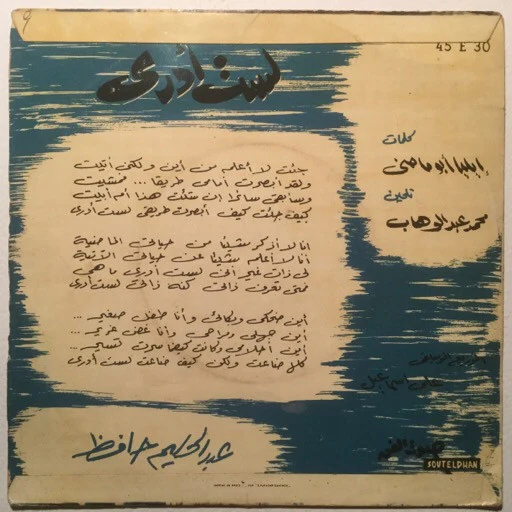 9
45 E 30
لست أدرى
كلمات
إيليا أبو ماضى
تلحين
محمد عبد الوهاب
جئت لا أعلم من أين ولكنى أتيت
ولقد أبصرت أمامى طريقا ... فمشيت
وسأبقى سائرا إن شئت هذا أم أبيت
كيف جئت كيف أبصرت طريقى لست أدرى
أنا لا أذكر شيئا من حياتى الماضية
أنا لا أعلم شيئا عن حياتى الآتية
لى ذات غير أنى لست أدرى ما هى
فمتى تعرف ذاتى كنه ذاتى لست أدرى
أين ضحكى وبكائى وأنا طفل صغير ...
أين جهلى ومراحى وأنا غض غرير ...
أين أحلامى وكانت كيفما سرت تسير ...
كلها ضاعت ولكن كيف ضاعت لست أدرى
على اسماعيل
عبد الحليم حافظ
صوت الفن
SOUTELPHAN